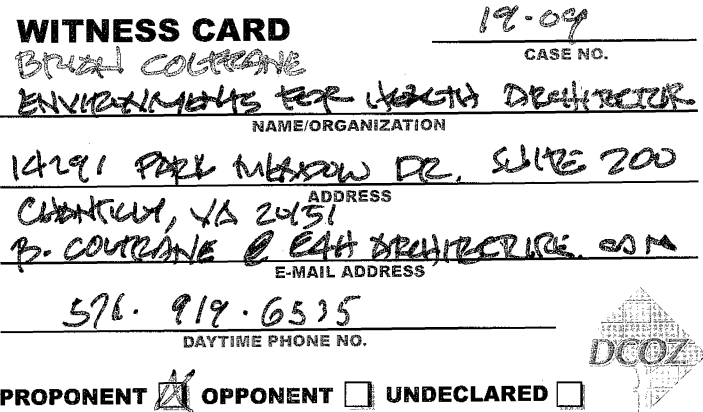 WITNESS CARD
19-09
CASE NO.
BRIAN COLTRANE
ENVIRONMENTS FOR HEALTH ARCHITECTURE
NAME/ORGANIZATION
14291 PARK MEADOW DR. SUITE 200
ADDRESS
CHANTILLY, VA 20151
B. COLTRANE @ E4H ARCHITECTURE. COM
E-MAIL ADDRESS
571. 919. 6535
DAYTIME PHONE NO.
DCOZ
PROPONENT OPPONENT UNDECLARED